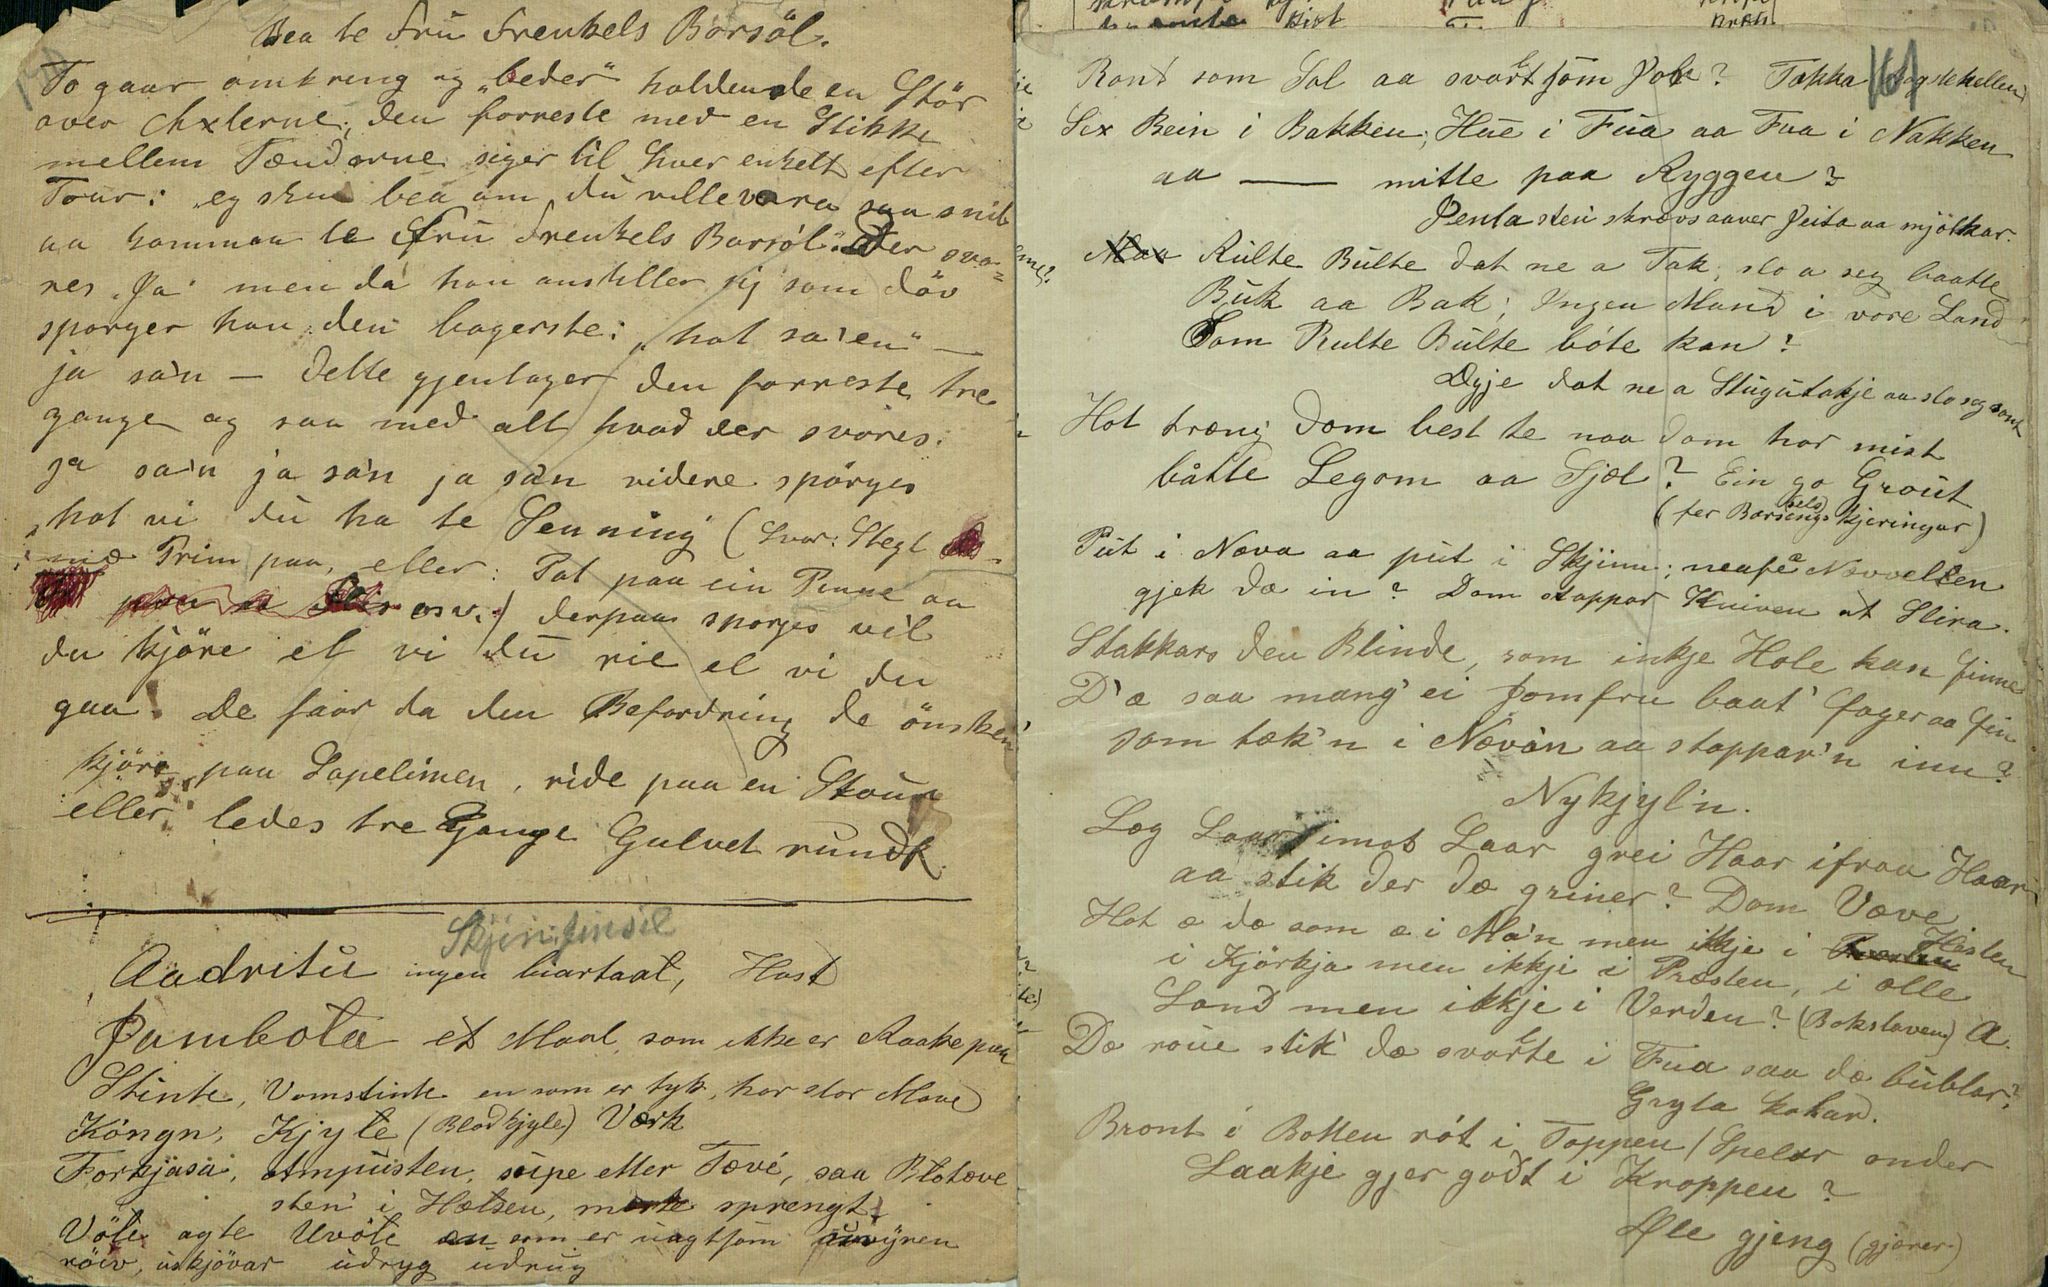 Bea te Fru Frenkels Barsöl.
To gaar omkring og "beder" holdende en Stör
over Axlerne, den forreste med en Stikke
mellem Tænderne siger til hver enkelt efter
Tour: "eg sku bea om du ville vara saa snil
aa komma te Fru Frenkels Barsöl". Der sva-
res "Ja" men da han anstiller sig som döv
spørger han den bagerste: "hot sa'en" —
ja sa'n — dette gjentager den forreste tre
gange og saa med alt hvad der svares.
ja sa'n ja sa'n ja sa'n videre spörges
"hot vi du ha te Senning (Svar: Stegt
mæ Prim paa, eller: Pot paa ein Pinne aa
osv.) derpaa spørges vil
du kjöre el vi du rie el vi du
gaa? De faar da den Befordring de önsker
kjöre paa Sopelimen, ride paa en Staur
eller ledes tre Gange Gulvet rundt.
Skjini finsil
Aadritu ingen biartaat, Hast
Jambota et Maal, som ikke er Raake paa
Stinte, Vomstinte en som er tyk, har stor Mave
Köngn, Kjyle (Blodkjyle) Værk
Forkjasa, ampusten, supe etter Tævé, saa Blotæve
sten i Hælsen, sprengt
Völe agte Uvöle som er uagtsom uvyren
röiv, uskjövar udryg udrug
161
Rond som Sol aa svart som Jol? Takka
Sex Bein i Bakken, Hue i Fua aa Fua i Nakken
aa — mitte paa Ryggen?
Jenta sten skrævs aaver Jeita aa mjölkar.
Rulte Bulte dat ne a Tak, slo a seg baatte
Buk aa Bak; Ingen Mand i vore Land
Som Rulte Bulte böte kan?
Ægje dat ne a Stugutakje aa slo seg sont
Hot træng dom best te naa dom har mist
båtte Legom aa Sjæl? Ein go Grout
(fer Barselskjeringar)
Put i Næva aa put i Skjinn; neafe Navvelen
gjek dæ in? Dom stappar Kniven at Slira.
Stakkars den Blinde, som inkje Hole kan finne
D'æ saa mang' ei Jomfru baat' fager aa fin
som tæk'n i Nævàn aa stappar'n inn?
Nykjyl'n.
Læg Laar imot Laar grei Haar ifraa Haar
aa stik der dæ griner? Dom Væve
Hot æ dæ som æ i Ma'n men ikkje i Hesten
i Kjörkja men ikkje i Præsten, i alle
Land men ikkje i Verden? (Bokstaven) A.
Dæ roue stik dæ svarte i Fua saa dæ bublar?
Gryta kokar.
Bront i Botten röt i Toppen / Spelar onder
Laakje gjer godt i Kroppen?
Øle gjeng (gjærer)